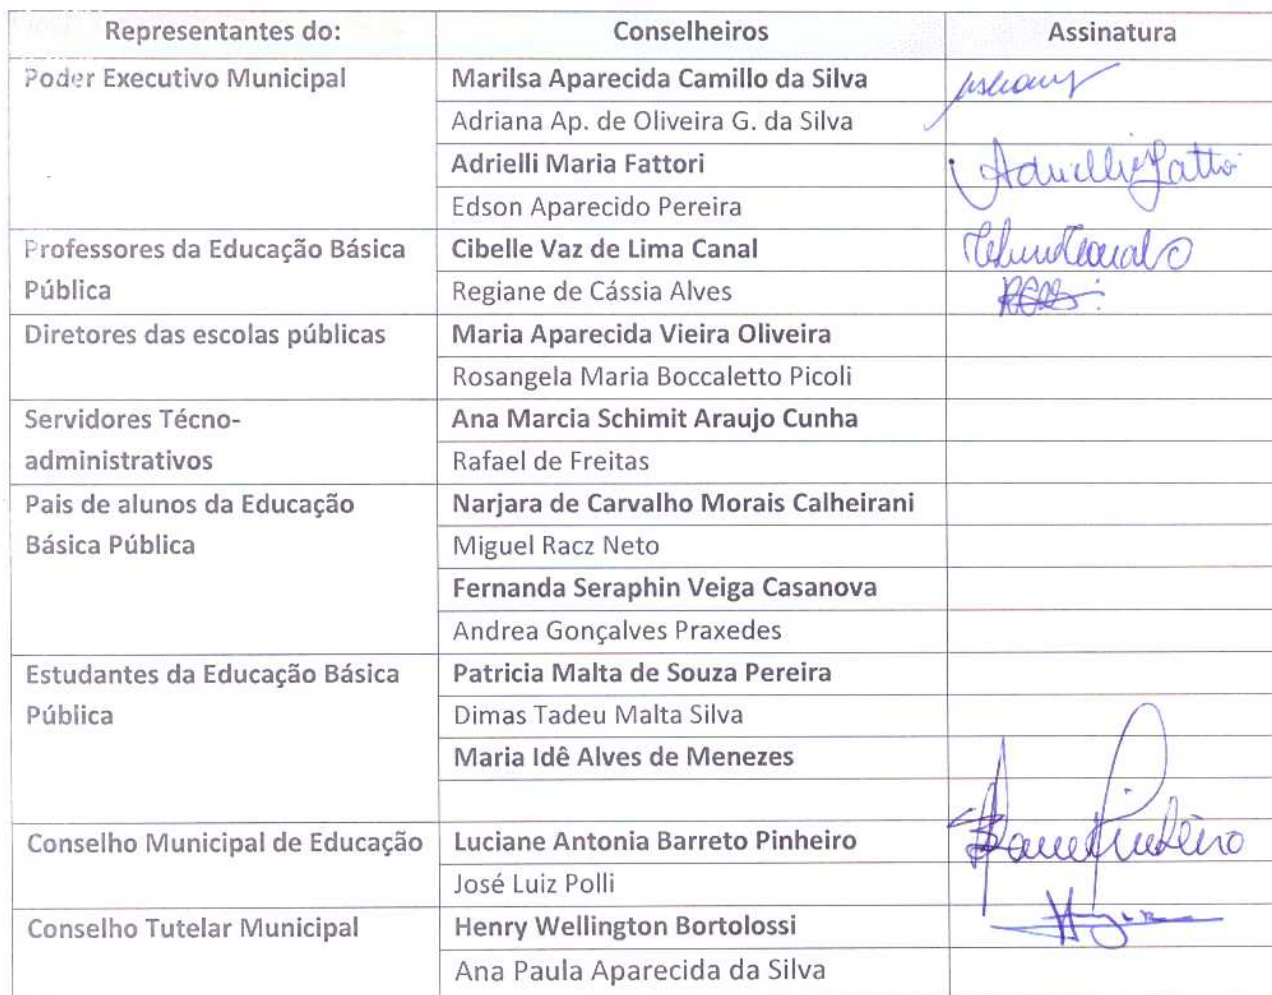 Representantes do: Conselheiros Assinatura
Poder Executivo Municipal Marilsa Aparecida Camillo da Silva
Adriana Ap. de Oliveira G. da Silva
Adrielli Maria Fattori Adrielli Fatto
Edson Aparecido Pereira
Professores da Educação Básica Cibelle Vaz de Lima Canal
Pública Regiane de Cássia Alves
Diretores das escolas públicas Maria Aparecida Vieira Oliveira
Rosangela Maria Boccaletto Picoli
Servidores Técno- Ana Marcia Schimit Araujo Cunha
administrativos Rafael de Freitas
Pais de alunos da Educação Narjara de Carvalho Morais Calheirani
Básica Pública Miguel Racz Neto
Fernanda Seraphin Veiga Casanova
Andrea Gonçalves Praxedes
Estudantes da Educação Básica Patricia Malta de Souza Pereira
Pública Dimas Tadeu Malta Silva
Maria Idê Alves de Menezes
Conselho Municipal de Educação Luciane Antonia Barreto Pinheiro
José Luiz Polli
Conselho Tutelar Municipal Henry Wellington Bortolossi
Ana Paula Aparecida da Silva